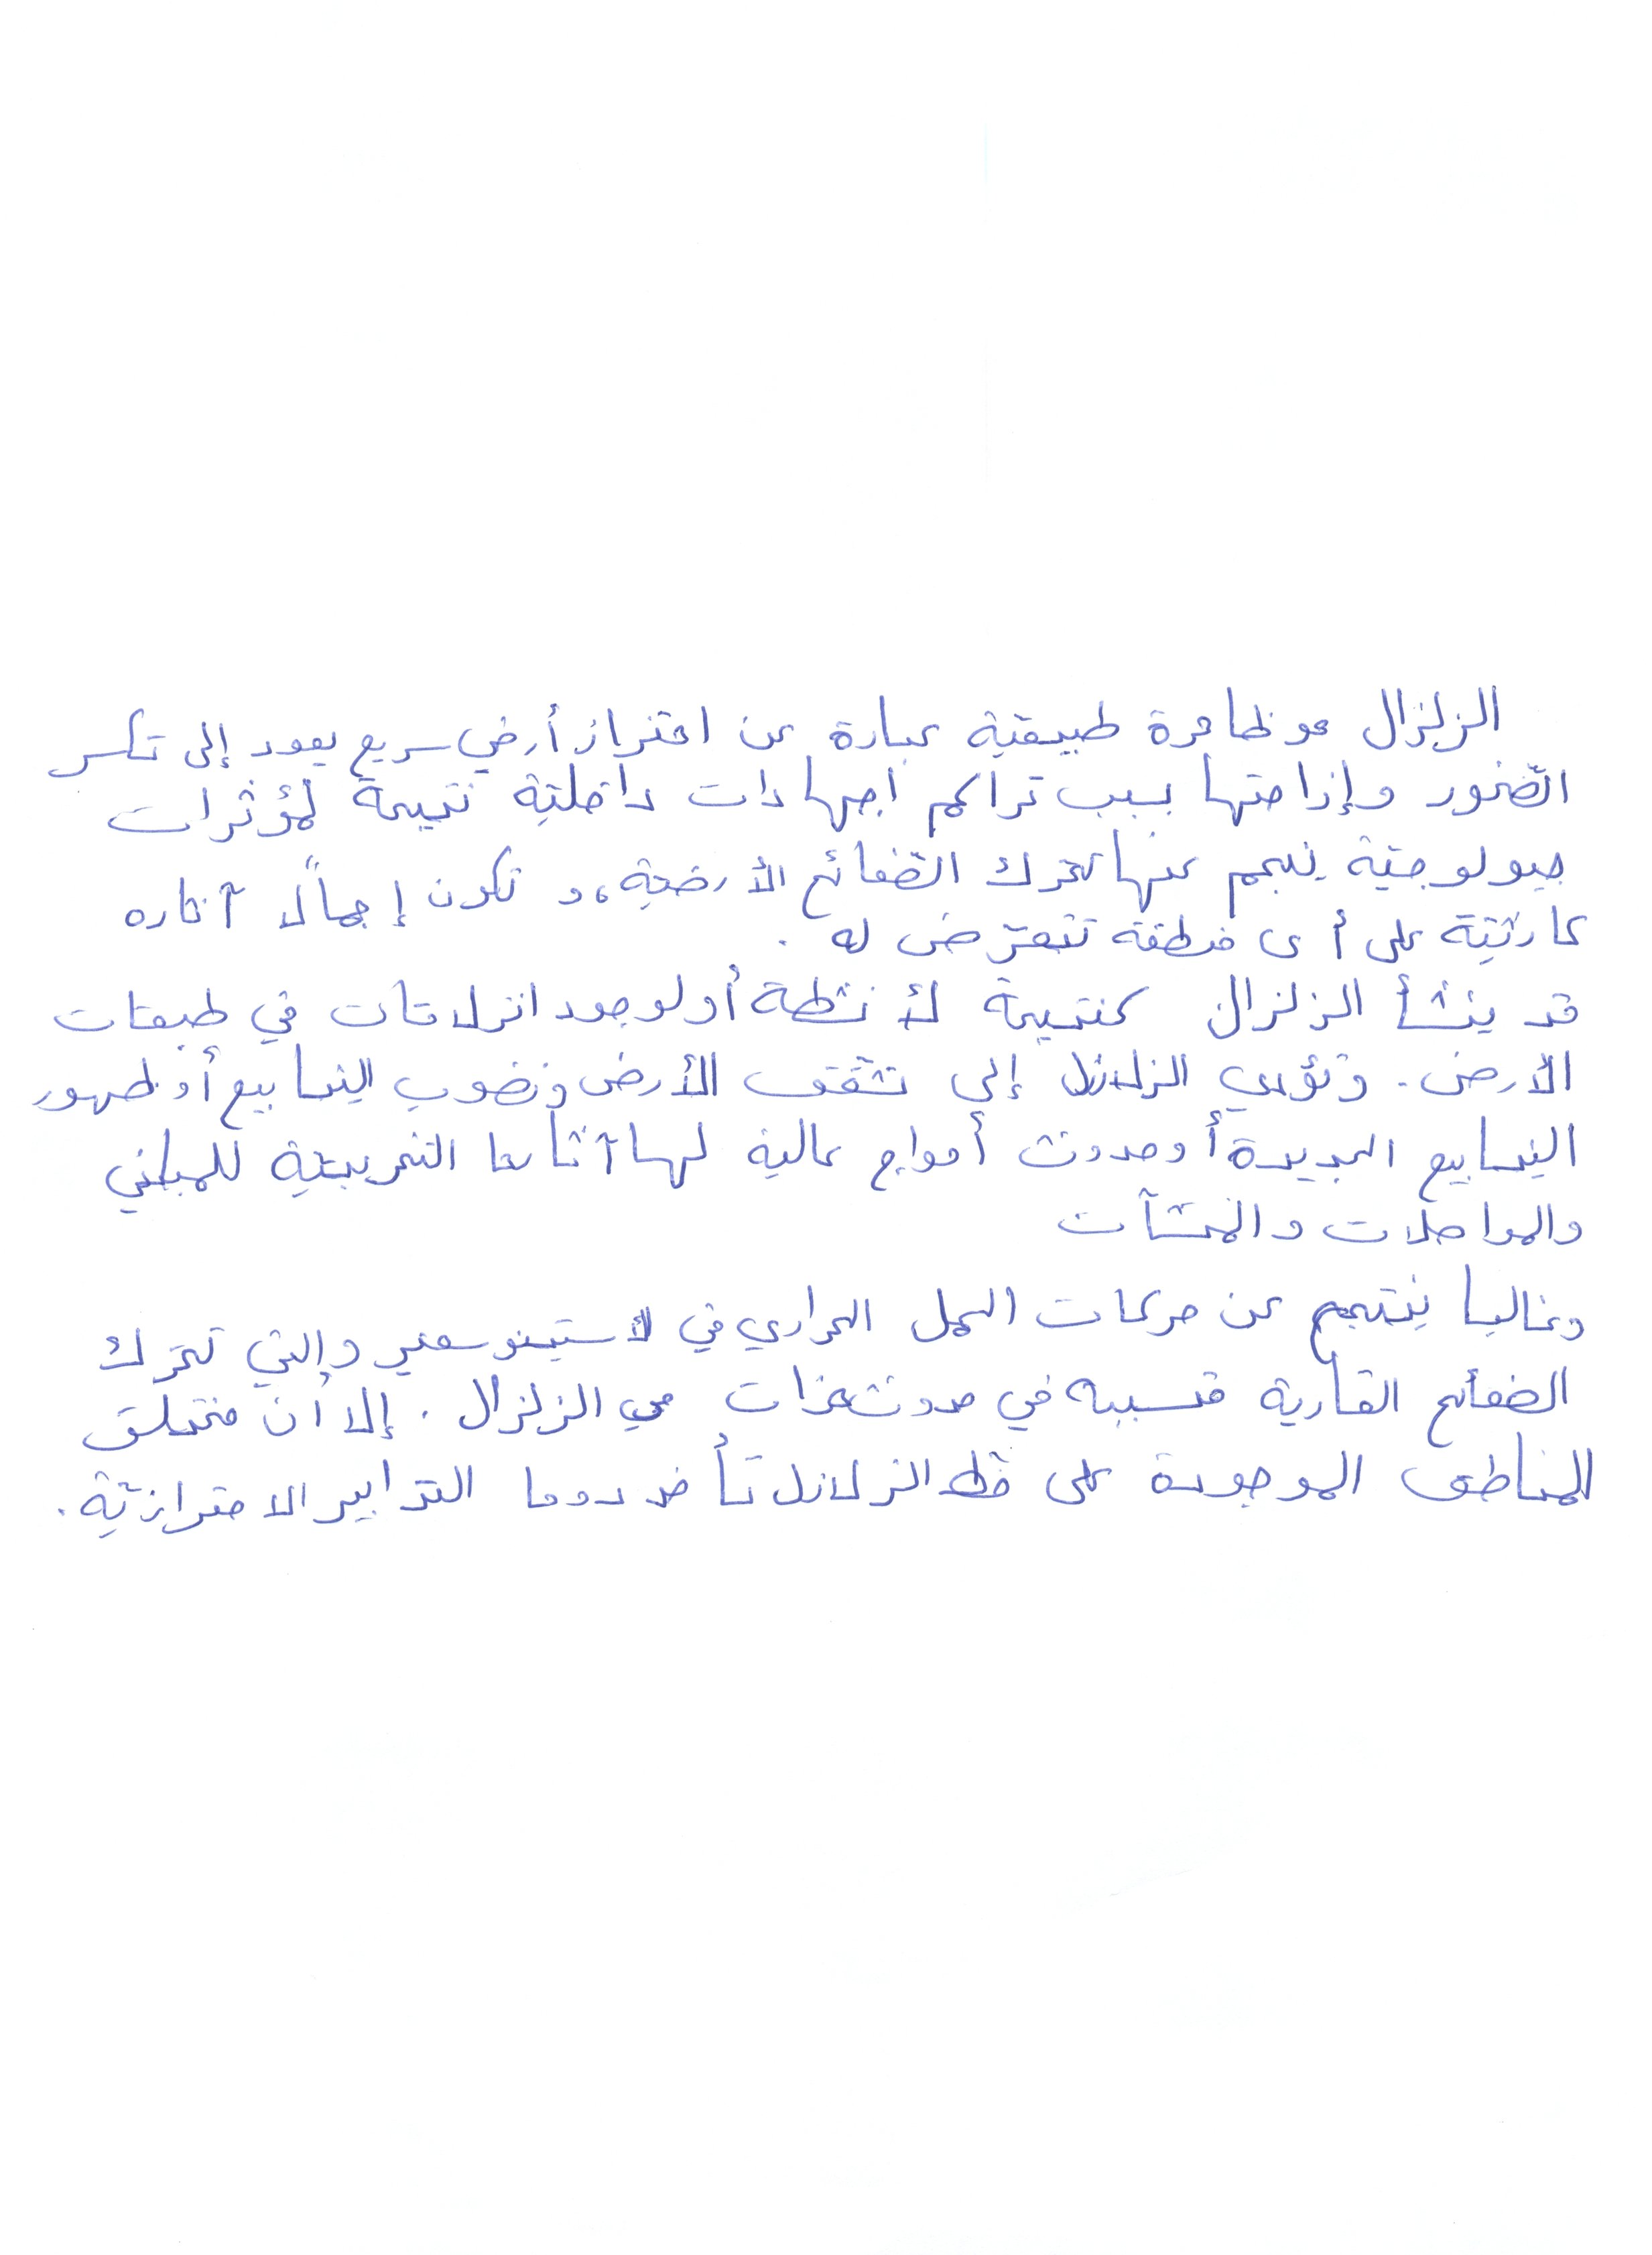 الزلزال هو ظاهرة طبيعيّة عبارة عن اهتزاز أرضي سريع يعود إلى تكسر
الصّخور وإزاحتها بسبب تراكم اجهادات داخليّة نتيجة لمؤثرات
جيولوجيّة ينجم عنها تحرك الصّفائح الأرضيّة، و تكون إجمالًا آثاره
كارثيّة على أي منطقة تتعرّض له .
قد ينشأ الزلزال كنتيجة لأنشطة أو لوجود انزلاقات في طبقات
الأرض. وتؤدي الزلازل إلى تشقق الأرض ونضوب الينابيع أو ظهور
الينابيع الجديدة أو حدوث أمواج عالية لها آثارها التخريبيّة للمباني
والمواصلات والمنشآت
وغالبا ينتج عن حركات الحمل الحراري في لأستينوسفير والتي تحرك
الصفائح القارية متسببه في حدوث هزات هي الزلزال . إلا أن مختلق
المناطق الموجودة على خط الزلازل تأخد دوما التدابير الاحترازيّة .